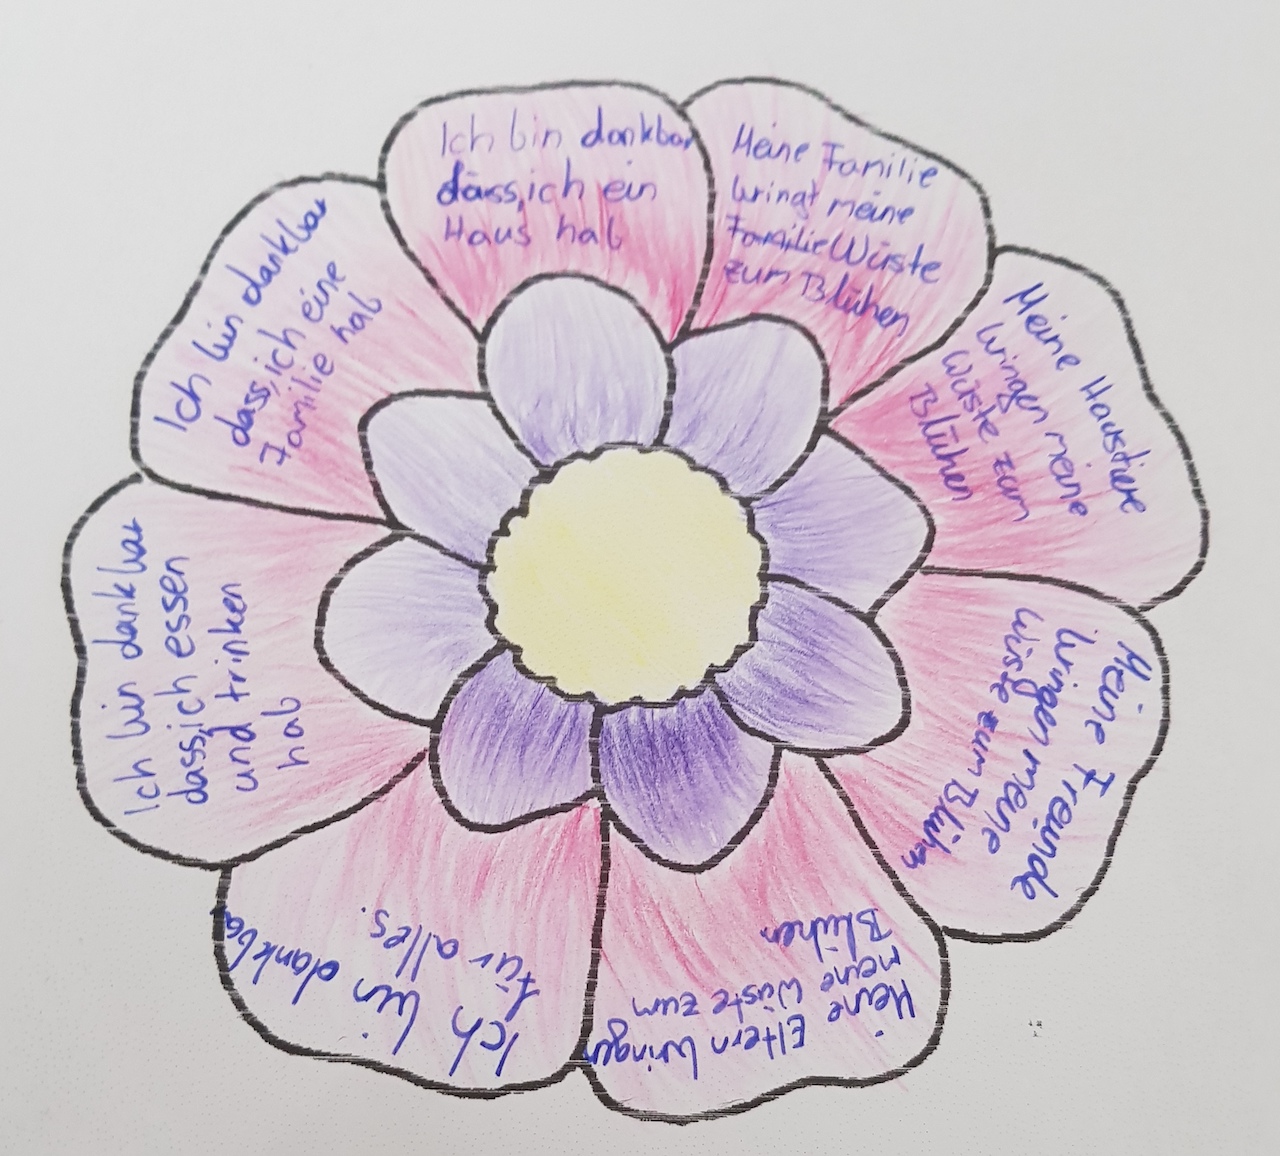 Ich bin dankbar
dass, ich ein
Haus hab
Meine Familie
bringt meine
Familie Wüste
zum Blühen
Meine Haustiere
bringen meine
Wüste zum
Blühen
Meine Freunde
bringen meine
Wüste zum Blühen
Meine Eltern bringen
meine Wüste zum
Blühen
Ich bin dankbar
für alles.
Ich bin dankbar
dass, ich essen
und trinken
hab
Ich bin dankbar
dass, ich eine
Familie hab